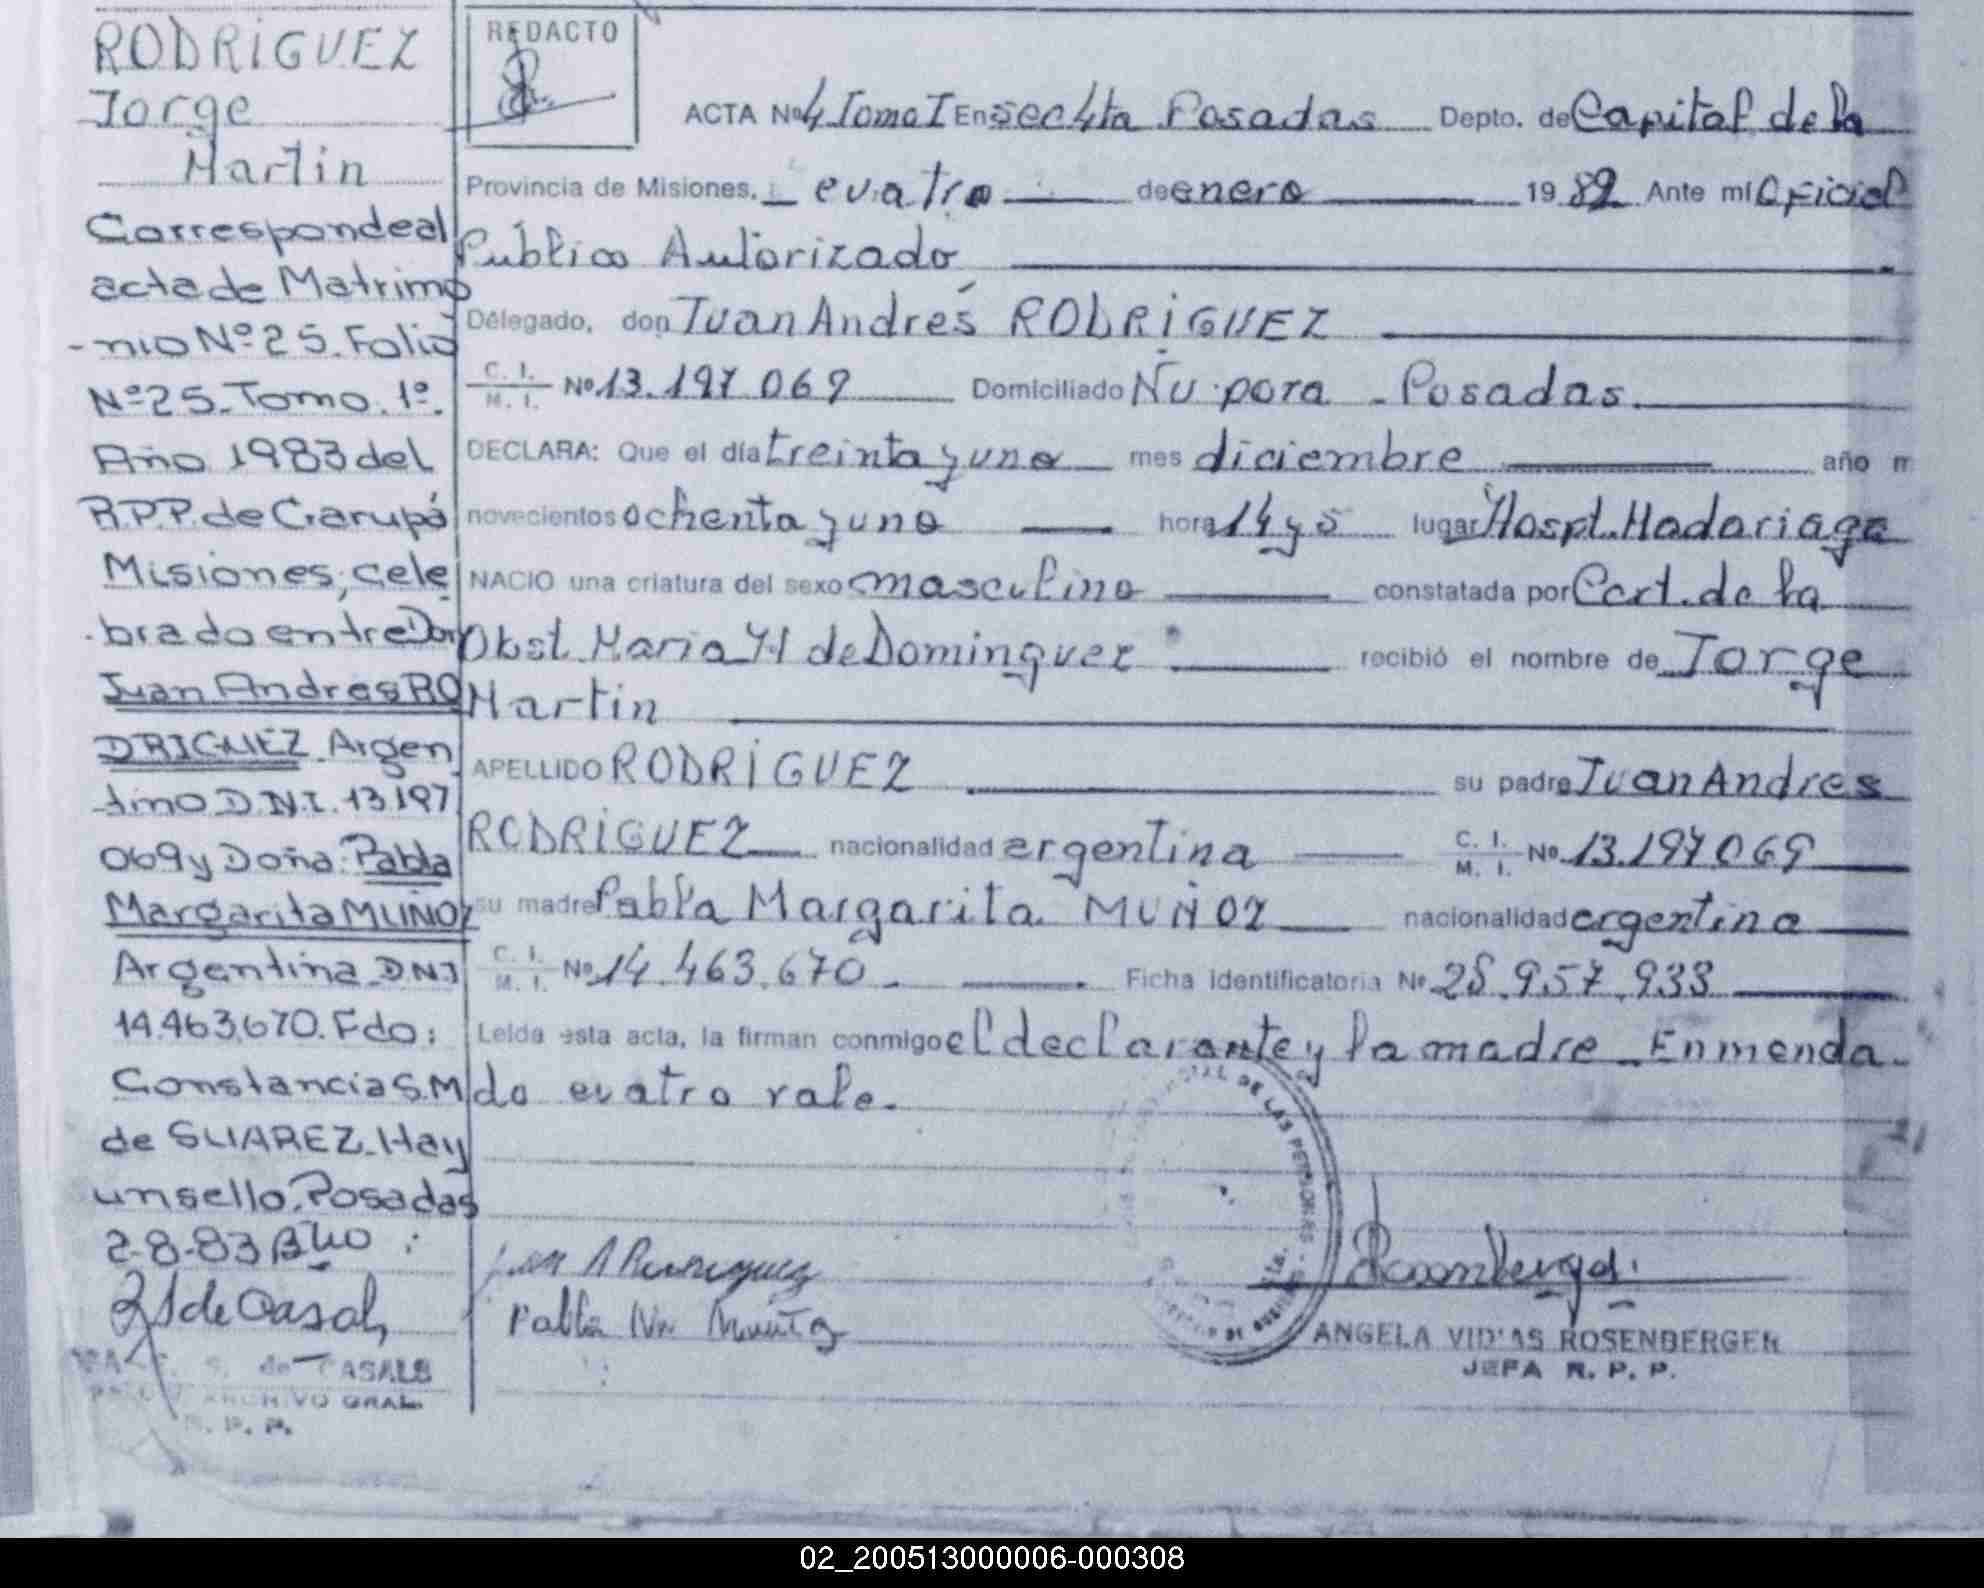 RODRIGUEZ
Jorge
Martin
Corresponde al
acta de Matrimo
-nio Nº 25. Folio
Nº 25. Tomo. 1º.
Año 1983 del
R.P.P. de Garupá
Misiones, cele
brado entre Don
Juan Andres RO
DRIGUEZ Argen
tino D.N.I. 13197
069 y Doña: Pabla
Margarita MUÑOZ
Argentina D.N.I
14.463.670. Fdo:
Constancia S.M
de SUAREZ. Hay
un sello. Posadas
2-8-83
de Casals
de CASALS
ARCHIVO GRAL.
R. P. P.
REDACTO
ACTA Nº 4 Tomo I En sec 4ta Posadas Depto. de Capital de la
Provincia de Misiones, cuatro de enero 19 82 Ante mí Oficial
Público Autorizado
Delegado, don Juan Andrés RODRIGUEZ
C. I. M. I. Nº 13.197.069 Domiciliado Ñu pora - Posadas.
DECLARA: Que el día treinta y uno mes diciembre año m
novecientos ochenta y uno hora 14 y 5 lugar Hospt. Madariaga
NACIO una criatura del sexo masculino constatada por Cert. de la
Obst. Maria H de Dominguez recibió el nombre de Jorge
Martin
APELLIDO RODRIGUEZ su padre Juan Andres
RODRIGUEZ nacionalidad argentina C. I. M. I. Nº 13.197.069
su madre Pabla Margarita MUÑOZ nacionalidad argentina
C. I. M. I. Nº 14.463.670. Ficha identificatoria Nº 28.957.933
Leída esta acta, la firman conmigo el declarante y la madre - Enmenda-
do cuatro vale.
DE LAS PERSONAS
Juan A Rodriguez
Pabla M. Muñoz
Rosenberger
ANGELA VIDAS ROSENBERGER
JEFA R. P. P.
02_200513000006-000308